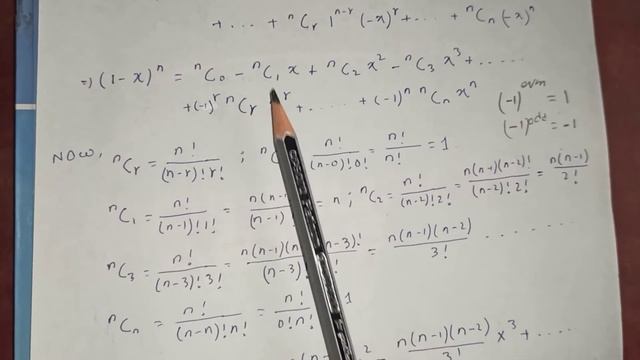 + ... + ⁿCᵣ 1ⁿ⁻ʳ (-x)ʳ + ... + ⁿCₙ (-x)ⁿ
⇒ (1-x)ⁿ = ⁿC₀ - ⁿC₁ x + ⁿC₂ x² - ⁿC₃ x³ + .....
+(-1)ʳ ⁿCᵣ ʳ + .... + (-1)ⁿ ⁿCₙ xⁿ
(-1)ᵉᵛᵉⁿ = 1
(-1)ᵒᵈᵈ = -1
NOW, ⁿCᵣ = n!/(n-r)! r! ; ⁿC n!/(n-0)! 0! = n!/n! = 1
ⁿC₁ = n!/(n-1)! 1! = n(n-1 /(n-1) = n ; ⁿC₂ = n!/(n-2)! 2! = n(n-1)(n-2)!/(n-2)! 2! = n(n-1)/2!
ⁿC₃ = n!/(n-3)! 3! = n(n-1)(n -3)!/(n-3) ! = n(n-1)(n-2)/3! ......
ⁿCₙ = n!/(n-n)! n! = n!/0! n! = 1
n(n-1)(n-2)/3! x³ + .....